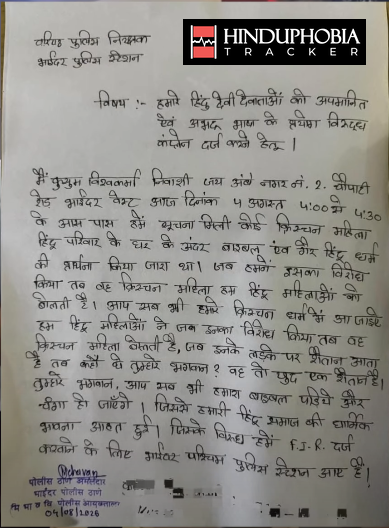 HINDUPHOBIA
TRACKER
वरिष्ठ पुलिस निरीक्षक
भाईंदर पुलिस स्टेशन
विषय :- हमारे हिंदू देवी देवताओं को अपमानित
एवं अभद्र भाषा के प्रयोग विरुद्ध
कंप्लेन दर्ज करने हेतु ।
मैं कुसुम विश्वकर्मा निवाशी जय अंबे नगर नं. 2. चौपाटी
रोड भाईंदर वेस्ट आज दिनांक 4 अगस्त 4:00 से 4:30
के आस पास हमें सूचना मिली कोई क्रिश्चन महिला
हिंदू परिवार के घर के अंदर बाइबल एवं गैर हिंदू धर्म
की प्रार्थना किया जारा था। जब हमने इसका विरोध
किया तब वह क्रिश्चन महिला हम हिंदू महिलाओं को
बोलती है। आप सब भी हमारे क्रिश्चन धर्म में आ जाइए
हम हिंदू महिलाओं ने जब उनका विरोध किया तब वह
क्रिश्चन महिला बोलती है, जब उनके लड़के पर शैतान आता
है तब कहाँ थे तुम्हारे भगवान? वह तो खुद एक शैतान है।
तुम्हारे भगवान, आप सब भी हमारा बाइबल पढ़िये और
चंगा हो जाएँगे। जिससे हमारी हिंदू समाज की धार्मिक
भावना आहत हुई। जिसके विरुद्ध हमें F.I.R. दर्ज
करवाने के लिए भाईंदर पश्चिम पुलिस स्टेशन आए है।
Mchavan
पोलीस ठाणे अंमलदार
भाईंदर पोलीस ठाणे
मि भा व वि पोलीस आयुक्तालय
04/08/2026